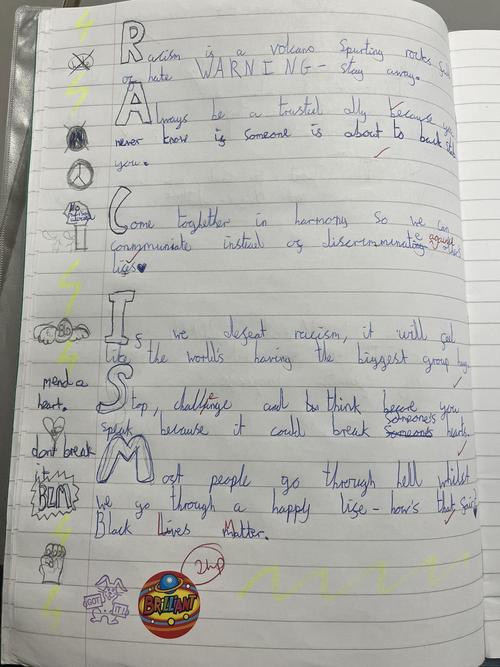 Racism is a volcano spurting rocks full
of hate WARNING - stay away.
Always be a trusted ally because you
never know if someone is about to back stab
you.
Come toghether in harmony so we can
communiate instead of discriminate against other's
lifes
If we defeat racism, it will feel
like the world's having the biggest group hug.
mend a
heart.
Stop, challenge and think before you
speak because it could break someone's hearts.
dont break
it
BLM
Most people go through hell whilst
we go through a happy life - how's that fair
Black Lives Matter.
2hp
GOT IT!
BRILLIANT